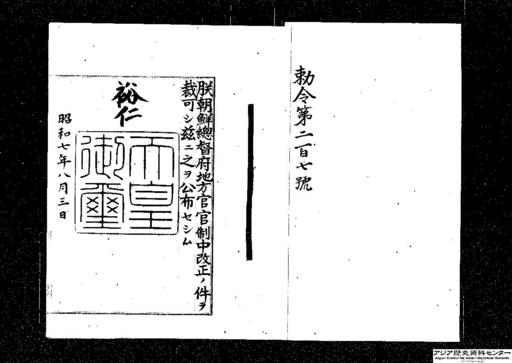 勅令第二百七號
朕朝鮮總督府地方官官制中改正ノ件ヲ
裁可シ茲ニ之ヲ公布セシム
裕仁
天皇
御璽
昭和七年八月三日
アジア歴史資料センター
Japan Center for Asian Historical Records